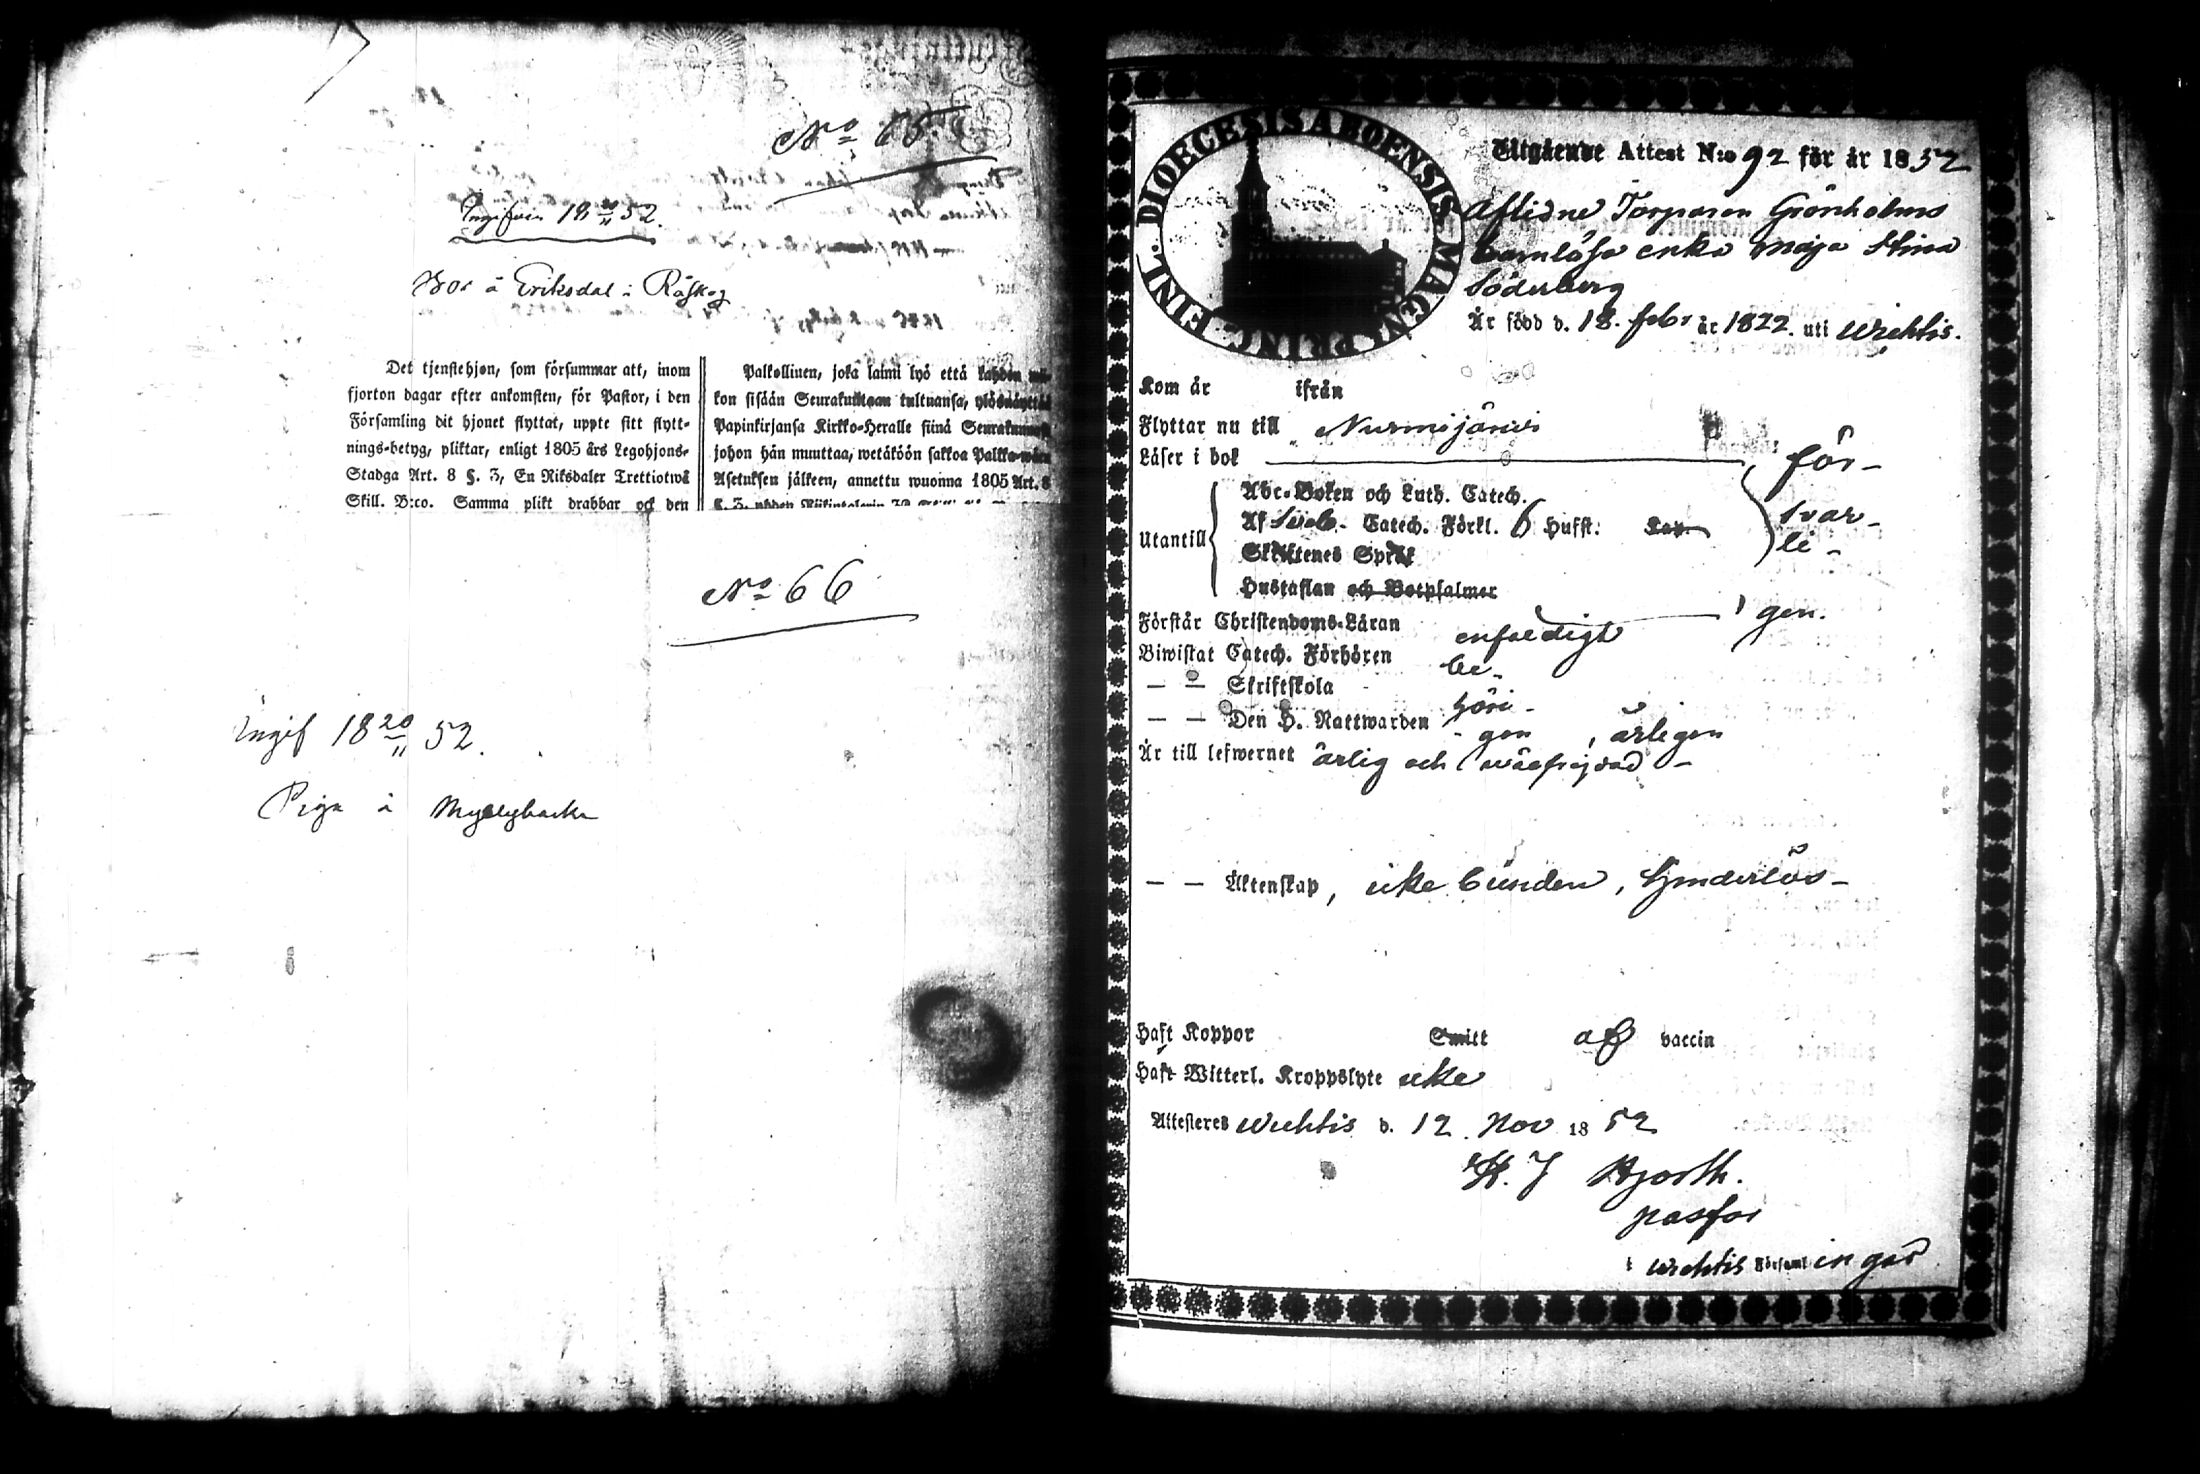 No 65
Ingifvin 18 20/11 52.
Bor å Eriksdal i Röskog
Det tjenstehjon, som försummar att, inom
fjorton dagar efter ankomsten, för Pastor, i den
Församling dit hjonet flyttat, uppte sitt flytt-
nings-betyg, pliktar, enligt 1805 års Legohjons-
Stadga Art. 8 §. 3, En Riksdaler Trettiotwå
Skill. B:co. Samma plikt drabbar och den
Palkollinen, joka laimi lyö että kahden
kon sisään Seurakuntaan tultuansa,
Papinkirjansa Kirkko-Heralle siinä
johon hän muuttaa, wetäköön sakkoa
Asetuksen jälkeen, annettu wuonna 1805 Art. 8
No 66
Ingif 18 20/11 52.
Piga å Myllybacka
DIOECESIS ABOENSIS MAGNI PRINC. FINL.
Utgående Attest N:o 92 för år 1852
Aflidne Torparen Grönholms
barnlösa enka Maja Stina
Söderberg
Är född d. 18. febr är 1822. uti Wichtis.
Kom år ifrån
Flyttar nu till Nurmijärvi
Läser i bok för-
Abc-Boken och Luth. Catech.
Af Catech. Förkl. 6 Hufst. svar-
Utantill
Skriftenes Språk li-
Hustaflan och Botpsalmer
Förstår Christendoms-Läran enfaldigt gen.
Biwistat Catech. Förhören be-
— — Skriftskola höri-
— — Den H. Nattwarden gen, årligen
Är till lefwernet ärlig och wälfrejdad -
— — Äktenskap, icke bunden, hinderlös-
Haft Koppor Smitt af vaccin
Haft Witterl. Kroppslyte icke
Attesteras Wichtis d. 12. Nov 1852
K. J Hjorth.
pastor
i Wichtis Församl